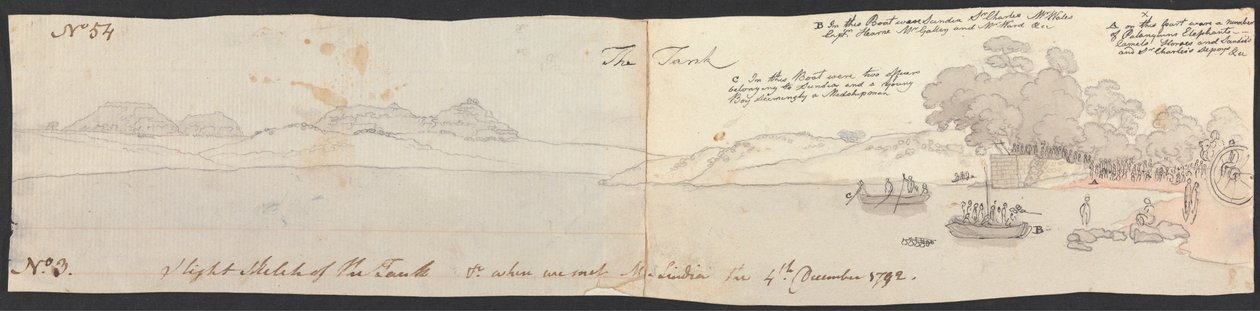 No 54
The Tank
B In this Boat were Sundia Sr Charles Mr Wales
Captn Hearne Mr Galley and Mr Ward &c
X
A on this coast were a number
of Palanquins Elephants
Camels Horses and Sundia's
and Sr Charles's Sepoys &c
C In this Boat were two officers
belonging to Sundia and a young
Boy seemingly a
C
A
B
No 3.
Slight Sketch of the Tank &c where we met Sindia the 4th December 1792.